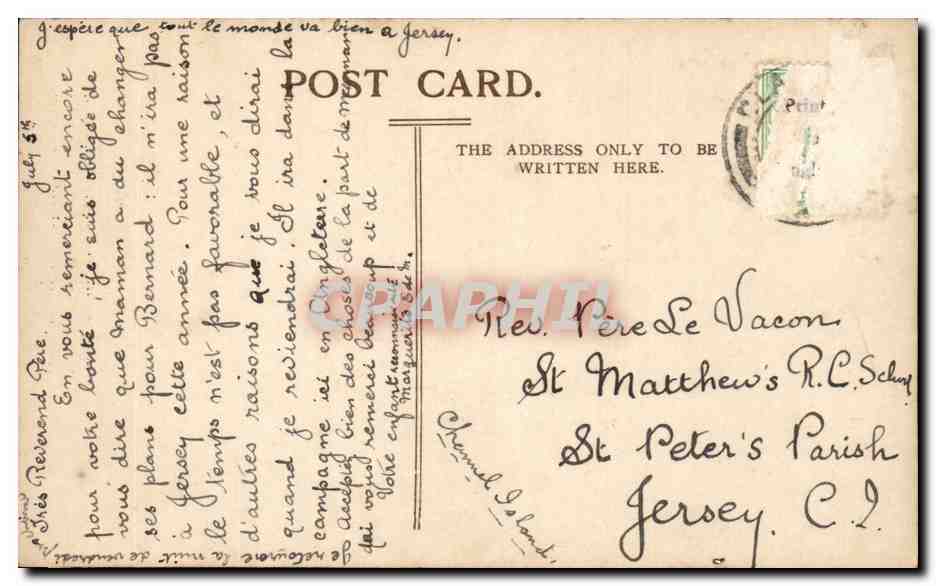 J'espère que tout le monde va bien à Jersey.
POST CARD.
THE ADDRESS ONLY TO BE
WRITTEN HERE.
Print
July 5th
Très Révérend Père
En vous remerciant encore
pour votre bonté je suis obligée de
vous dire que Maman a du changer
ses plans pour Bernard : il n'ira pas
à Jersey cette année. Pour une raison
le temps n'est pas favorable, et
d'autres raisons que je vous dirai
quand je reviendrai. Il ira dans la
campagne ici en Angleterre.
Acceptez bien des choses de la part de maman
qui vous remerci beaucoup et de
Votre enfant reconnaissante
Marguerite S de M.
Je retourne la nuit de vendredi
prochain
CPAPHIL
Rev. Père Le Vacon
St Matthew's R.C. School
St Peter's Parish
Jersey. C.I.
Channel Islands